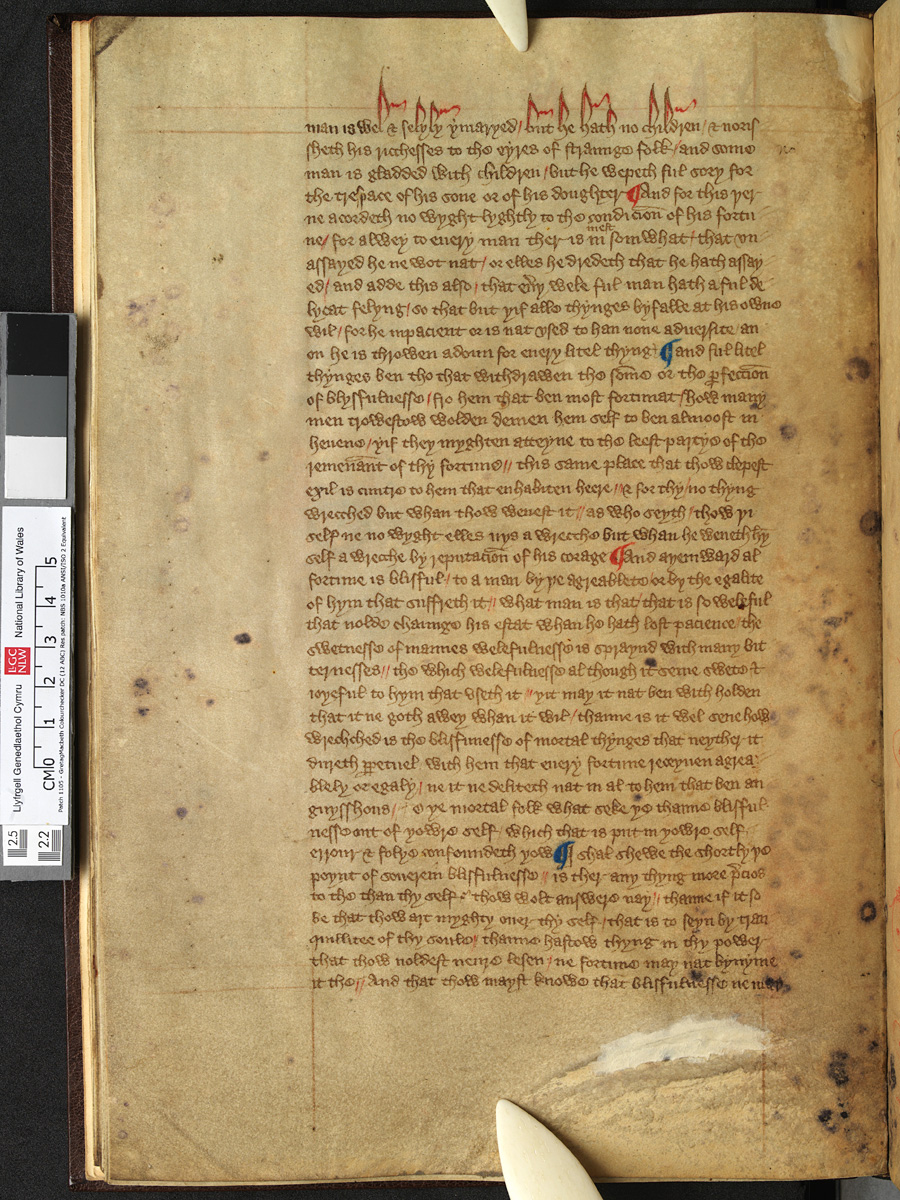 man is wel & selyly ymaryed / but he hath no children / & noris
sheth his ricchesses to the eyres of straunge folk / and some
man is gladded with children / but he wepeth ful sory for
the trespace of his sone or of his doughter ¶ And for this þer
ne acordeth no wyght lyghtly to the condicion of his fortu
ne / for alwey to euery man ther is in mest somwhat / that vn
assayed he ne wot nat / or elles he dredeth that he hath assay
ed / and adde this also / that euery wele ful man hath a ful de
lycat felyng / so that but yif alle thynges byfalle at his owne
wil / for he inpacient or is nat vsed to han none aduersite / an
on he is throwen adoun for euery litel thyng ¶ and ful litel
thynges ben tho that withdrawen the some or the perfeccion
of blysfulnesse / fro hem that ben most fortunat / how many
men trowestow wolden demen hem self to ben almoost in
heuene / yif they myghten atteyne to the leest partye of the
remenant of thy fortune // this same place that thow clepest
exil is cuntre to hem that enhabiten heere // & for thy / no thyng
wrecched but whan thow wenest it // as who seyth / thow yi
self ne no wyght elles nys a wrecche but whan he weneth hym
self a wrecche by reputacion of his corage ¶ And ayeinward al
fortune is blisful / to a man by þe agreablete or by the egalite
of hym that suffreth it // what man is that / that is so weleful
that nolde chaunge his estat whan he hath lost pacience / the
swetnesse of mannes welefulnesse is spraynd with many bit
ternesses // the which welefulnesse al though it seme swete &
ioyeful to hym that vseth it // yit may it nat ben with holden
that it ne goth awey whan it wil / thanne is it wel sene how
wrechched is the blisfunesse of mortal thynges that neyther it
dureth perpetuel with hem that euery fortune receyuen agrea
blely or egaly / ne it ne delitech nat in al to hem that ben an
guysshous / o ye mortal folk what seke ye thanne blisful
nesse out of yowre self / which that is put in yowre self
errour & folye confoundeth yow ¶ I shal shewe the shortly þe
poynt of souerein blisfulnesse // is ther any thyng more precios
to the than thy self / thow wolt answere nay // thanne if it so
be that thow art myghty ouer thy self / that is to seyn by tran
quillitee of thy soule // thanne hastow thyng in thy power
that thow noldest neuere lesen / ne fortune may nat bynyme
it the // And that thow mayst knowe that blisfulnesse ne may
Llyfrgell Genedlaethol Cymru
National Library of Wales
LLGC
NLW
CM 0 1 2 3 4 5
2.5
2.2